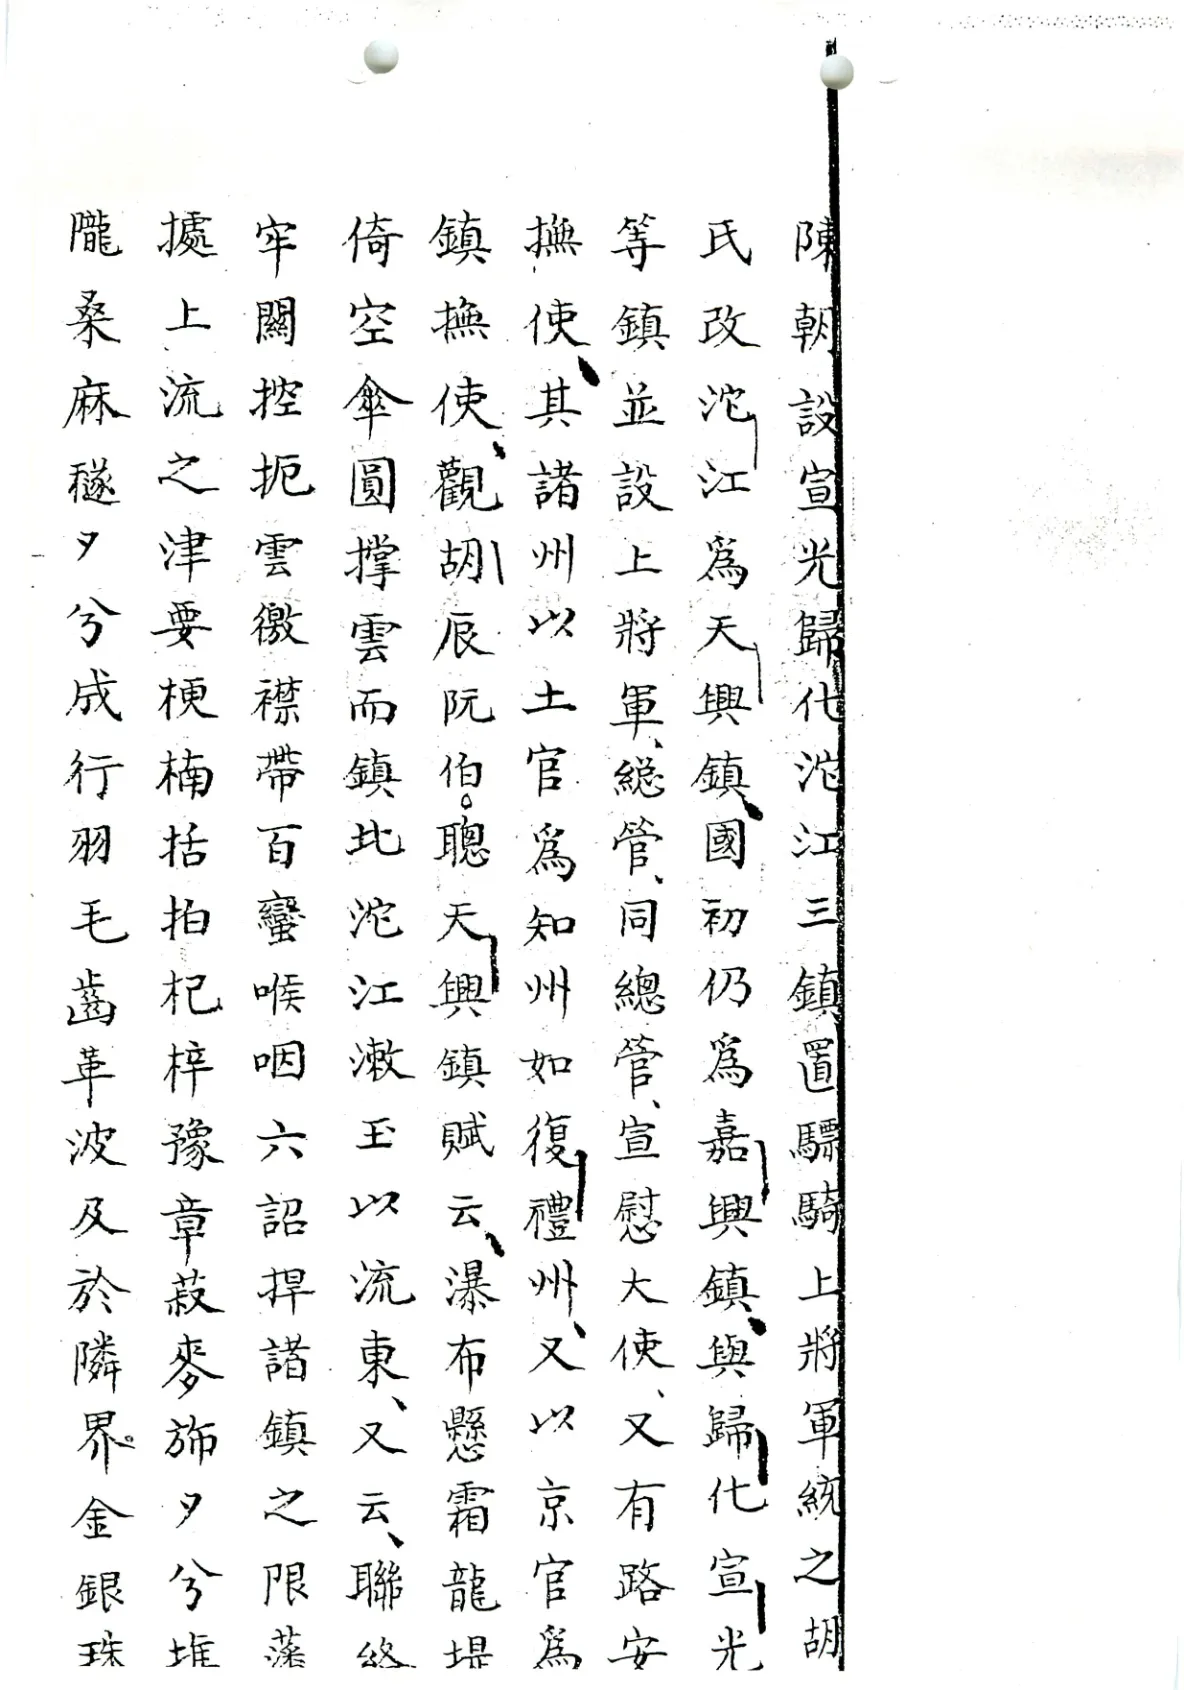 陳朝設宣光歸化沱江三鎮置驃騎上將軍統之胡
氏改沱江爲天興鎮、國初仍爲嘉興鎮、與歸化宣光
等鎮並設上將軍、総管、同總管、宣慰大使、又有路安
撫使、其諸州以土官爲知州如復禮州、又以京官爲
鎮撫使、觀胡辰阮伯聰天興鎮賦云、瀑布懸霜龍堤
倚空傘圓撑雲而鎮北沱江漱玉以流東、又云、聯絡
牢關控扼雲徼襟帶百蠻喉咽六詔捍諸鎮之限藩
據上流之津要梗楠括拍杞梓豫章菽麥斾夕兮堆
隴桑麻穟夕兮成行羽毛齒革波及於隣界。金銀珠